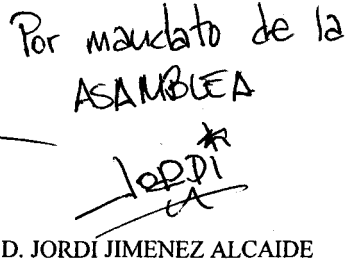 Por mandato de la
ASAMBLEA
JORDI
D. JORDI JIMENEZ ALCAIDE